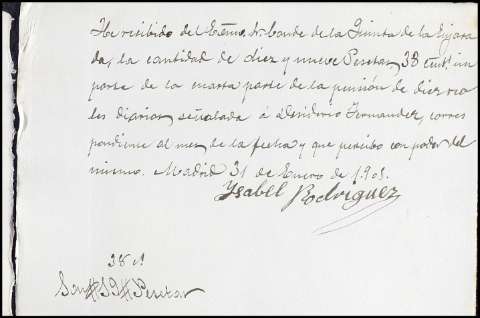 He recibido del Excmo. Sr. Conde de la Quinta de la Enjara
da, la cantidad de diez y nueve Pesetas, 38 cents. im
porte de la cuarta parte de la pensión de diez rea
les diarios, señalada á Desiderio Fernandez, corres
pondiente al mes de la fecha y que percibo con poder del
mismo. Madrid 31 de Enero de 1.905.
Ysabel Rodriguez
38 cs
Son # 19 # Pesetas